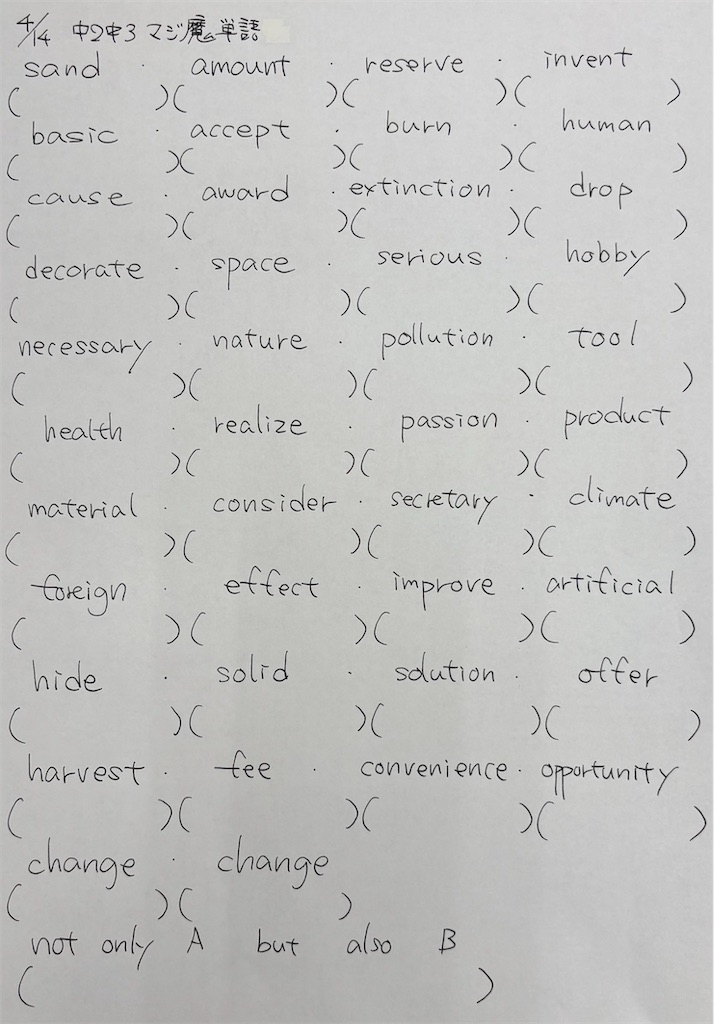 4/14 中2中3 マジ魔単語
sand ・ amount ・ reserve ・ invent
(　　　)(　　　)(　　　)(　　　)
basic ・ accept ・ burn ・ human
(　　　)(　　　)(　　　)(　　　)
cause ・ award ・ extinction ・ drop
(　　　)(　　　)(　　　)(　　　)
decorate ・ space ・ serious ・ hobby
(　　　)(　　　)(　　　)(　　　)
necessary ・ nature ・ pollution ・ tool
(　　　)(　　　)(　　　)(　　　)
health ・ realize ・ passion ・ product
(　　　)(　　　)(　　　)(　　　)
material ・ consider ・ secretary ・ climate
(　　　)(　　　)(　　　)(　　　)
foreign ・ effect ・ improve ・ artificial
(　　　)(　　　)(　　　)(　　　)
hide ・ solid ・ solution ・ offer
(　　　)(　　　)(　　　)(　　　)
harvest ・ fee ・ convenience ・ opportunity
(　　　)(　　　)(　　　)(　　　)
change ・ change
(　　　)(　　　)
not only A but also B
(　　　)